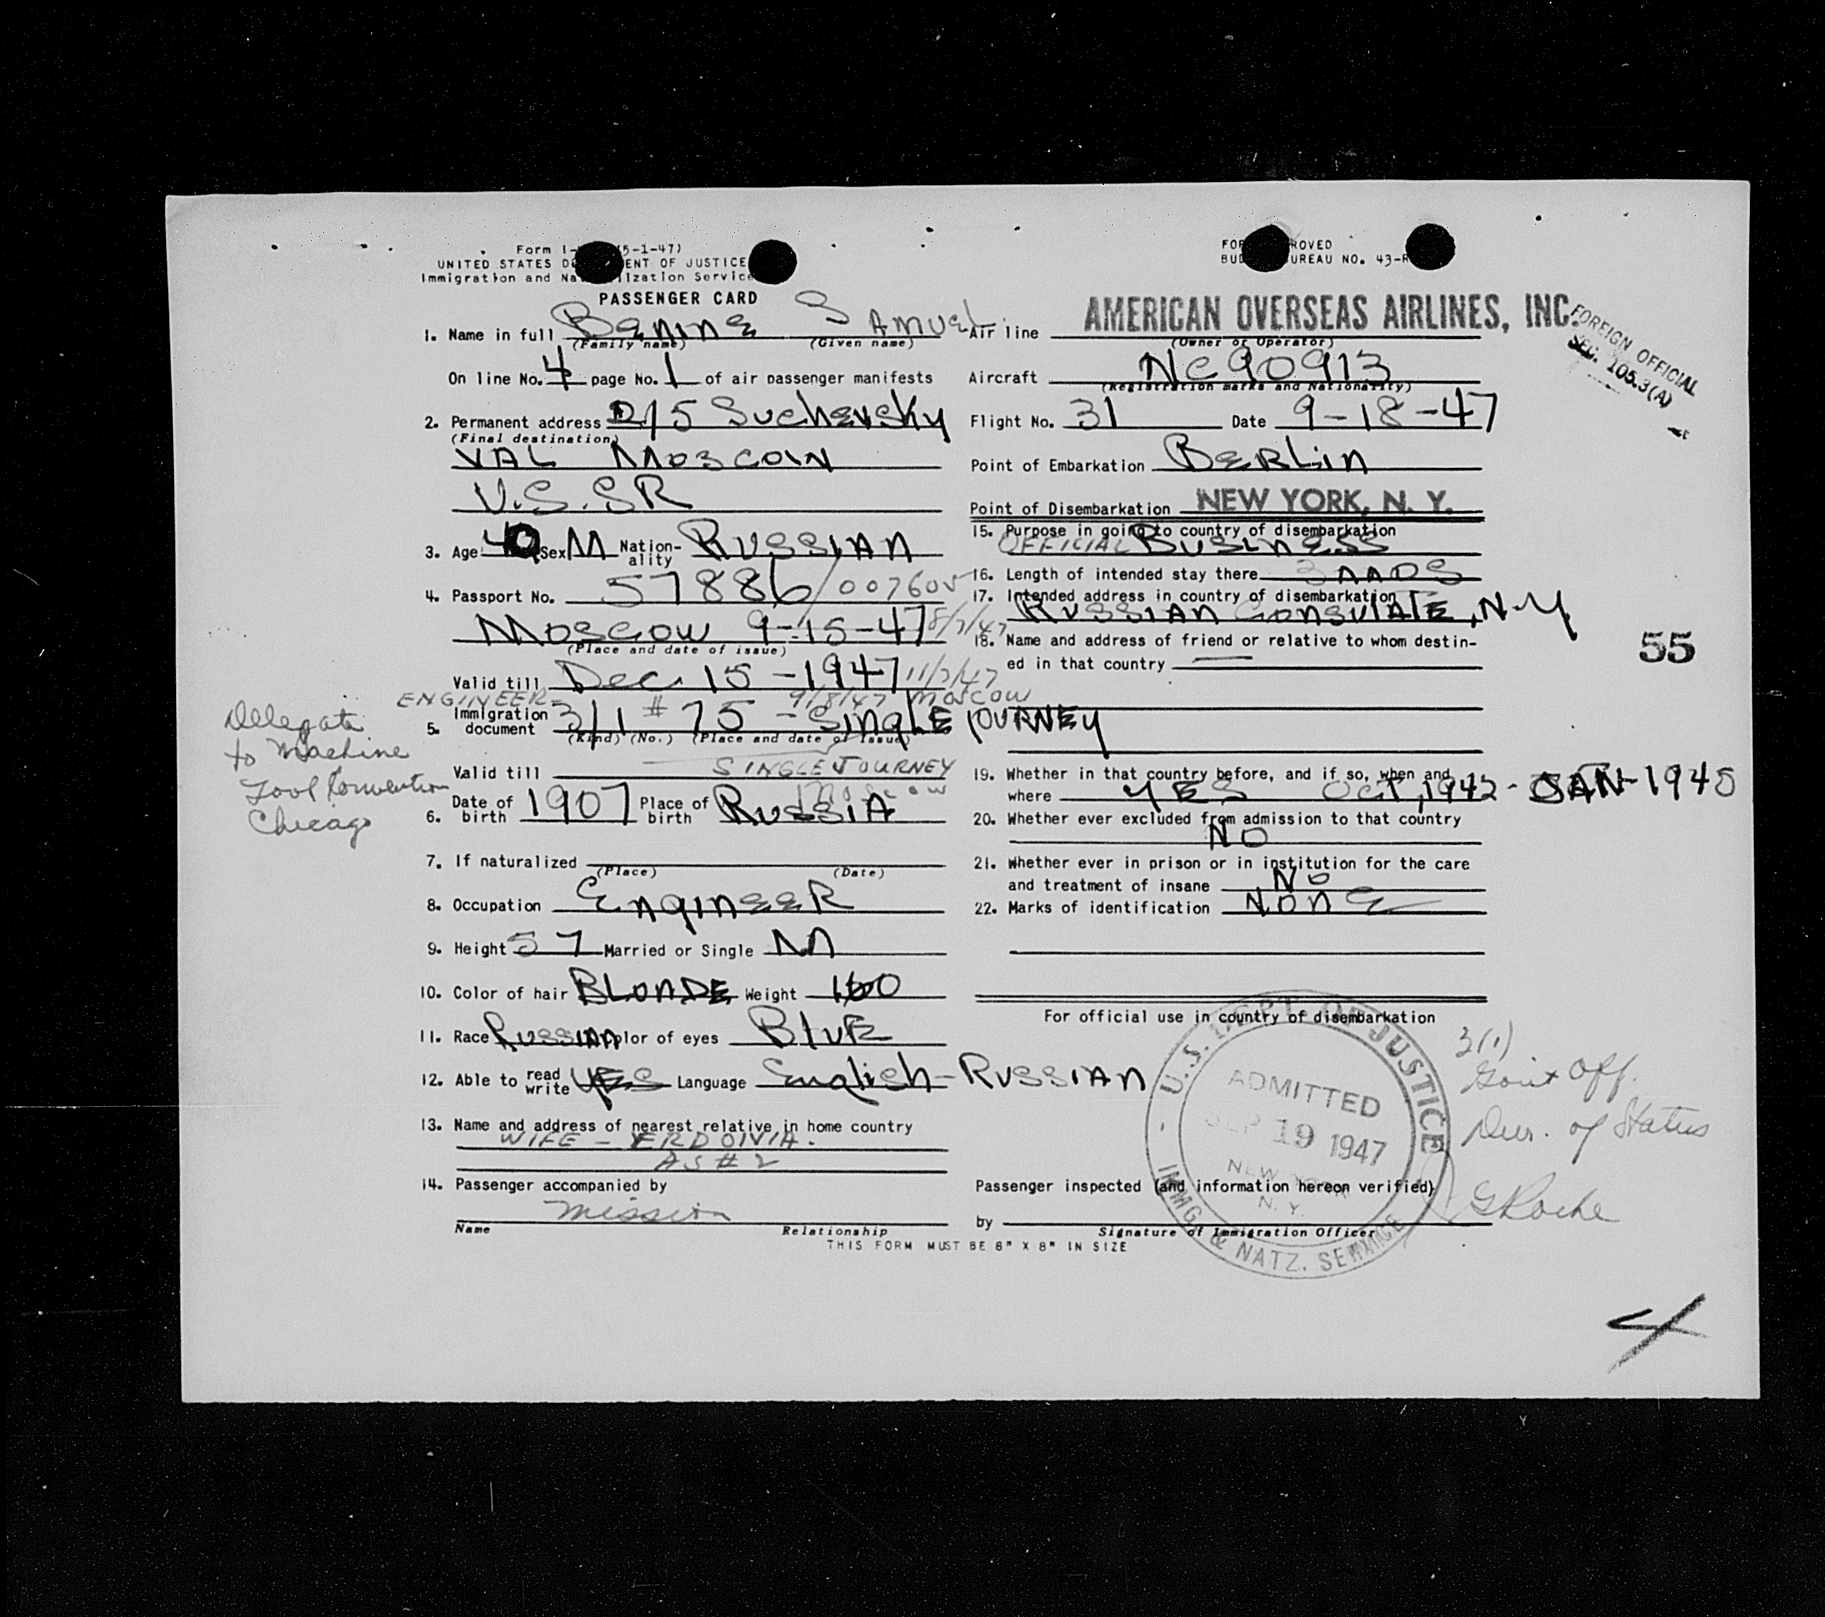 Form I- (5-1-47)
UNITED STATES D ENT OF JUSTICE
Immigration and Na lization Service
PASSENGER CARD
1. Name in full Benine Samuel
(Family name) (Given name)
On line No. 4 page No. 1 of air passenger manifests
2. Permanent address 2/5 Suchevsky
(Final destination)
VAL MOSCOW
U.S.SR
3. Age 40 Sex M Nationality RUSSIAN
4. Passport No. 57886/007605
MOSCOW 9-15-47 8/7/47
(Place and date of issue)
Valid till Dec 15-1947 11/7/47
ENGINEER 9/8/47 Moscow
5. Immigration document 3/1 # 75 - SINGLE JOURNEY
(Kind) (No.) (Place and date of Issue)
Valid till SINGLE JOURNEY
Moscow
6. Date of birth 1907 Place of birth RUSSIA
7. If naturalized
(Place) (Date)
8. Occupation ENGINEER
9. Height 5 7 Married or Single M
10. Color of hair BLONDE Weight 160
11. Race RUSSIAN Color of eyes BLUE
12. Able to read write YES Language English - RUSSIAN
13. Name and address of nearest relative in home country
WIFE - ERDOIVIA.
AS # 2
14. Passenger accompanied by
Mission
Name Relationship
THIS FORM MUST BE 6" X 8" IN SIZE
Delegate
to Machine
Tool Convention
Chicago
FOR ROVED
BUD UREAU NO. 43-R
Air line AMERICAN OVERSEAS AIRLINES, INC.
(Owner or Operator)
FOREIGN OFFICIAL
SEC. 105.3(A)
Aircraft NC90913
(Registration marks and Nationality)
Flight No. 31 Date 9-18-47
Point of Embarkation BERLIN
Point of Disembarkation NEW YORK, N. Y.
15. Purpose in going to country of disembarkation
OFFICIAL BUSINESS
16. Length of intended stay there 3 MOS
17. Intended address in country of disembarkation
RUSSIAN CONSULATE, N.Y
18. Name and address of friend or relative to whom destin-
ed in that country
55
19. Whether in that country before, and if so, when and
where YES OCT, 1942 - JAN - 1945
20. Whether ever excluded from admission to that country
NO
21. Whether ever in prison or in institution for the care
and treatment of insane NO
22. Marks of identification NONE
For official use in country of disembarkation
U.S. DEPT. OF JUSTICE
ADMITTED
SEP 19 1947
NEW YORK
N. Y.
IMMG. & NATZ. SERVICE
3(1)
Govt Off.
Dur. of Status
Passenger inspected (and information hereon verified)
by G Roche
Signature of Immigration Officer
4